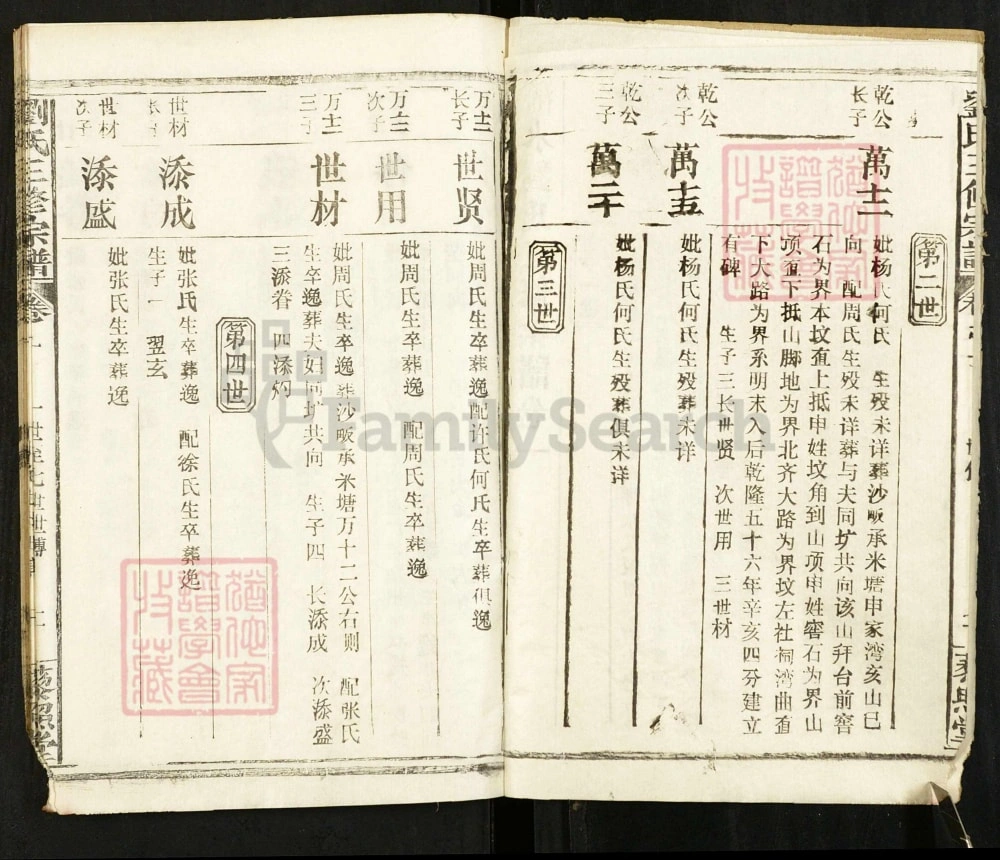 劉氏三修宗譜
第二世
乾公長子
萬十二
妣杨大何氏 生殁未详葬沙畈承米塘申家湾亥山巳
向 配周氏生殁未详葬与夫同圹共向该山拜台前窖
石为界本坟直上抵申姓坟角到山项申姓窖石为界山
项直下抵山脚地为界北齐大路为界坟左社祠湾曲直
下大路为界系明末入后乾隆五十六年辛亥四房建立
有碑 生子三长世贤 次世用 三世材
乾公次子
萬十五
妣杨氏何氏生殁葬未详
乾公三子
萬二十
妣杨氏何氏生殁葬俱未详
第三世
万十二长子
世贤
妣周氏生卒葬逸配许氏何氏生卒葬俱逸
万十二次子
世用
妣周氏生卒葬逸 配周氏生卒葬逸
万十二三子
世材
妣周氏生卒逸葬沙畈承米塘万十二公右侧 配张氏
生卒逸葬夫妇同圹共向 生子四 长添成 次添盛
三添眷 四添灼
第四世
世材长子
添成
妣张氏生卒葬逸 配徐氏生卒葬逸
生子一 翌玄
世材次子
添盛
妣张氏生卒葬逸
劉氏三修宗譜
一世至七世世傳
藜照堂
猶他家譜學會特藏
猶他家譜學會特藏
FamilySearch